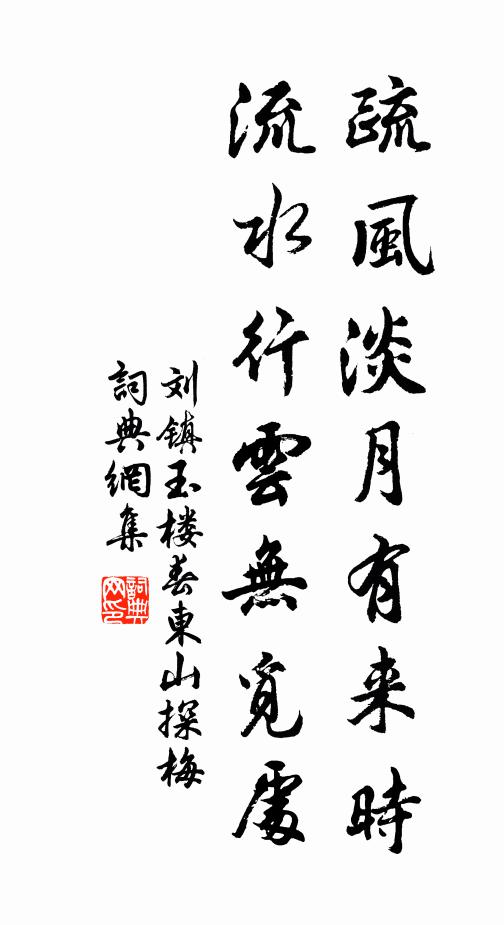 疏風淡月有来時
流水行雲無覓處
刘镇玉楼春東山探梅
詞典網集
詞典网印